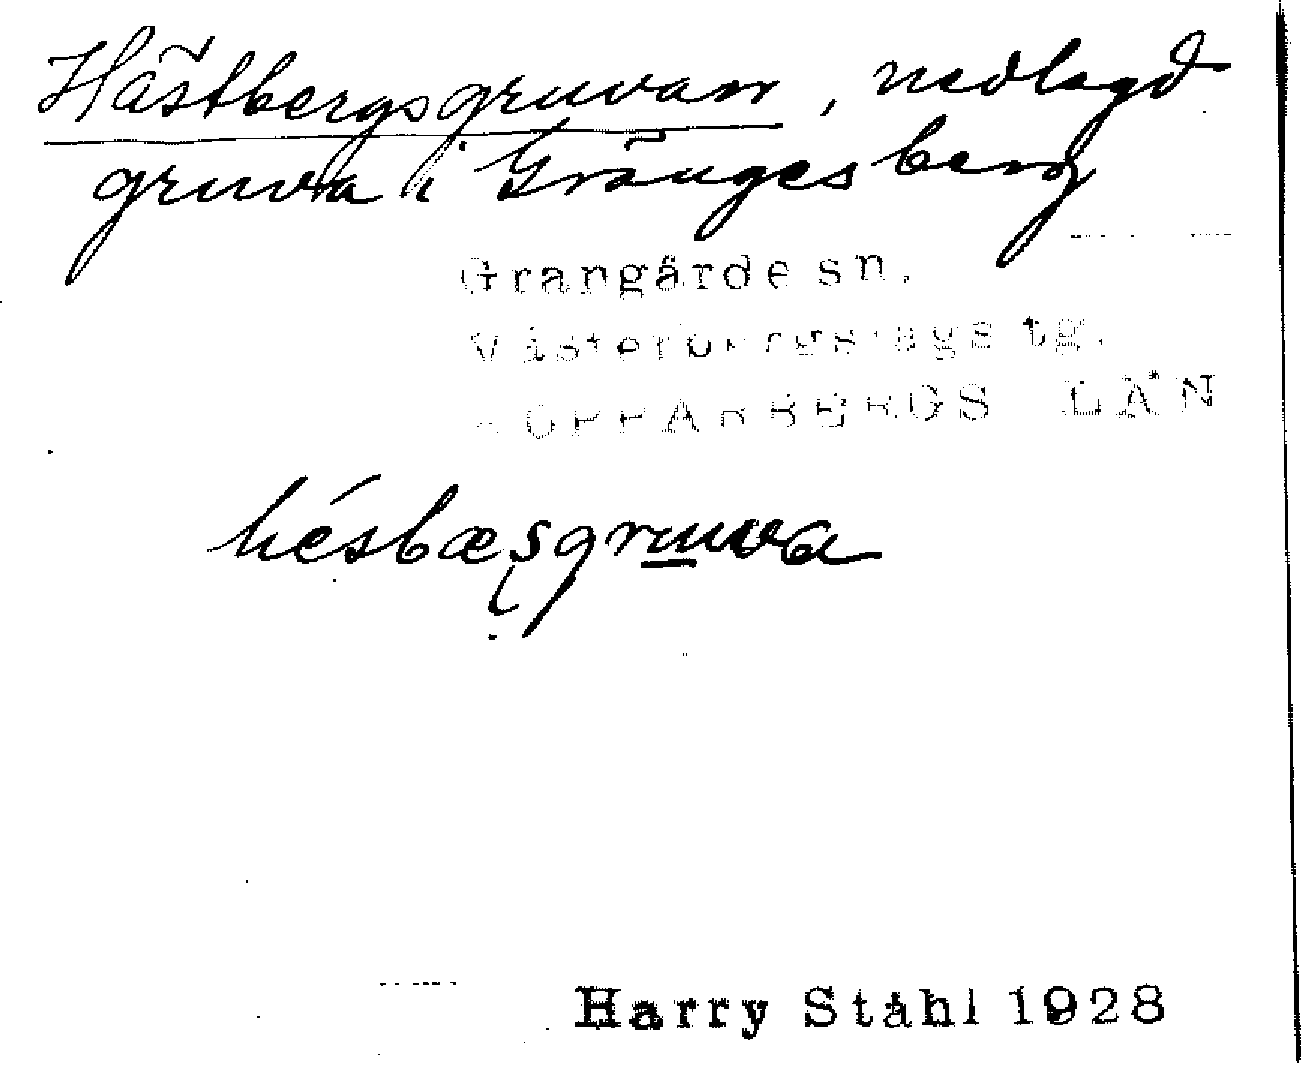 Hästbergsgruvan, nedlagd
gruva i Grängesberg
Grangärde sn.
Västerbergslags tg.
KOPPARBERGS LÄN
hésbæșgruva
Harry Ståhl 1928